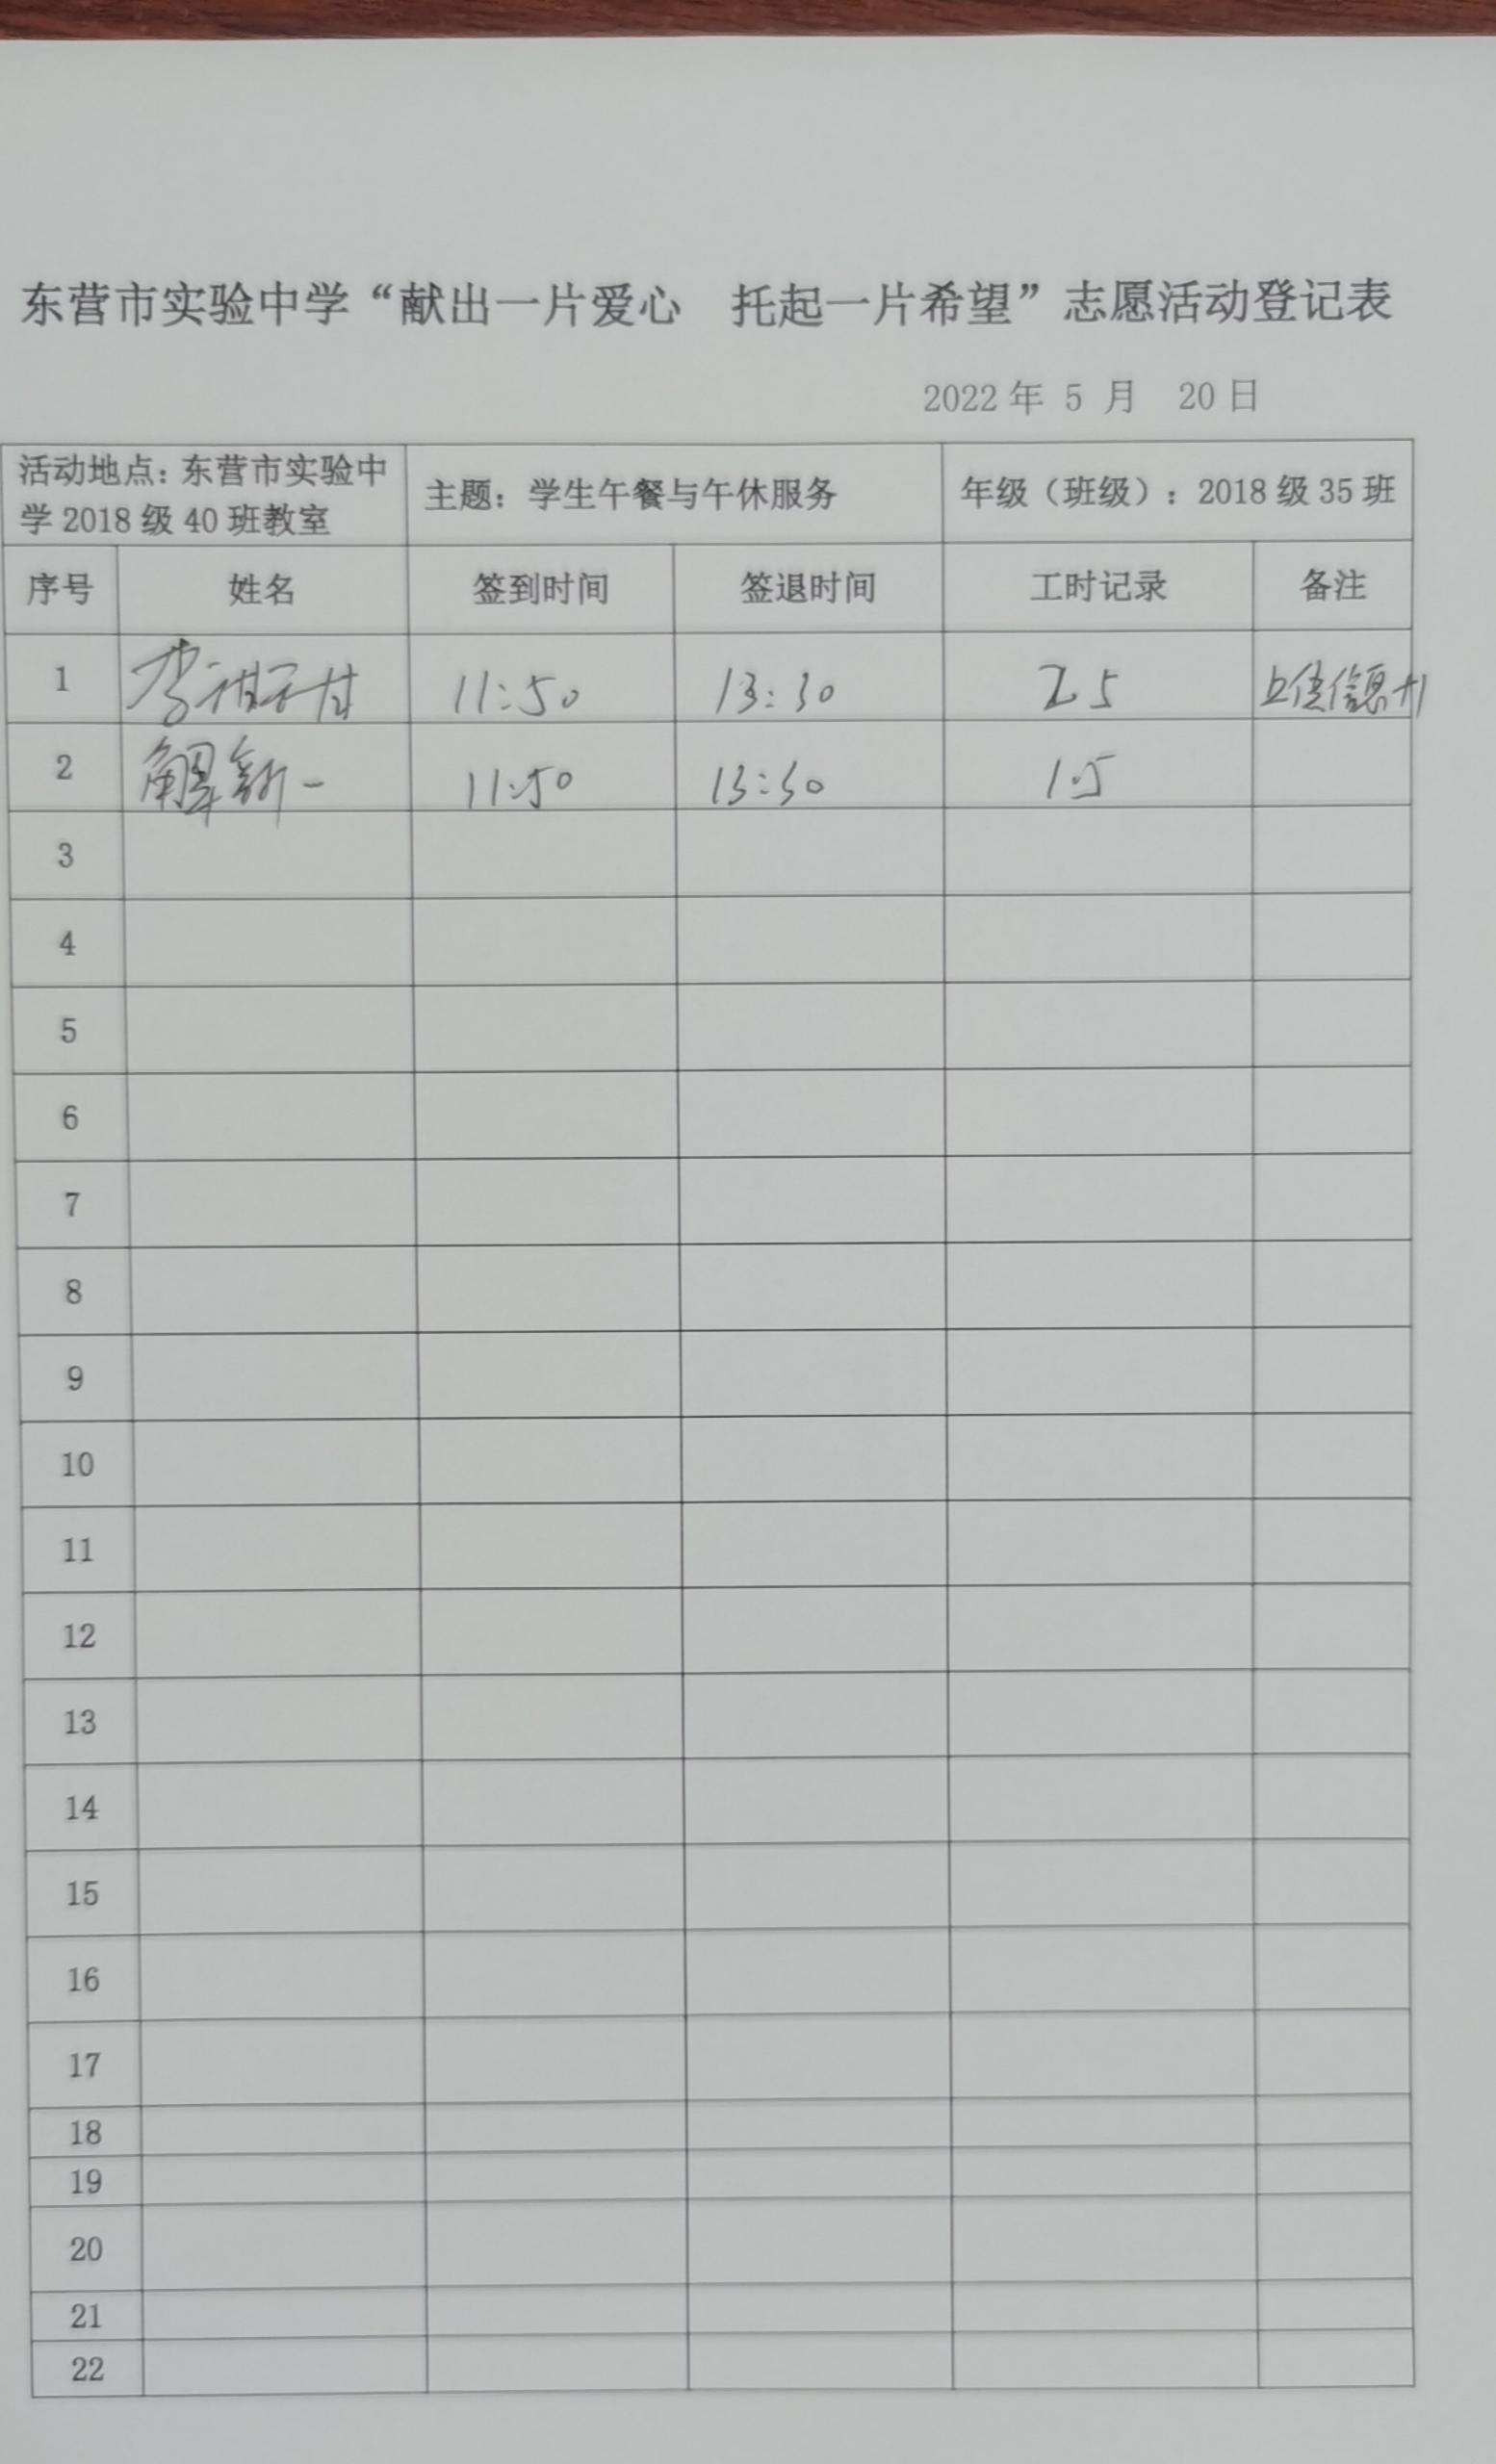 东营市实验中学“献出一片爱心 托起一片希望”志愿活动登记表
2022 年 5 月 20 日
活动地点：东营市实验中学 2018 级 40 班教室 主题：学生午餐与午休服务 年级（班级）：2018 级 35 班
序号 姓名 签到时间 签退时间 工时记录 备注
1 李 11:50 13:30 2.5 上传信息+1
2 解新一 11:50 13:30 1.5
3
4
5
6
7
8
9
10
11
12
13
14
15
16
17
18
19
20
21
22